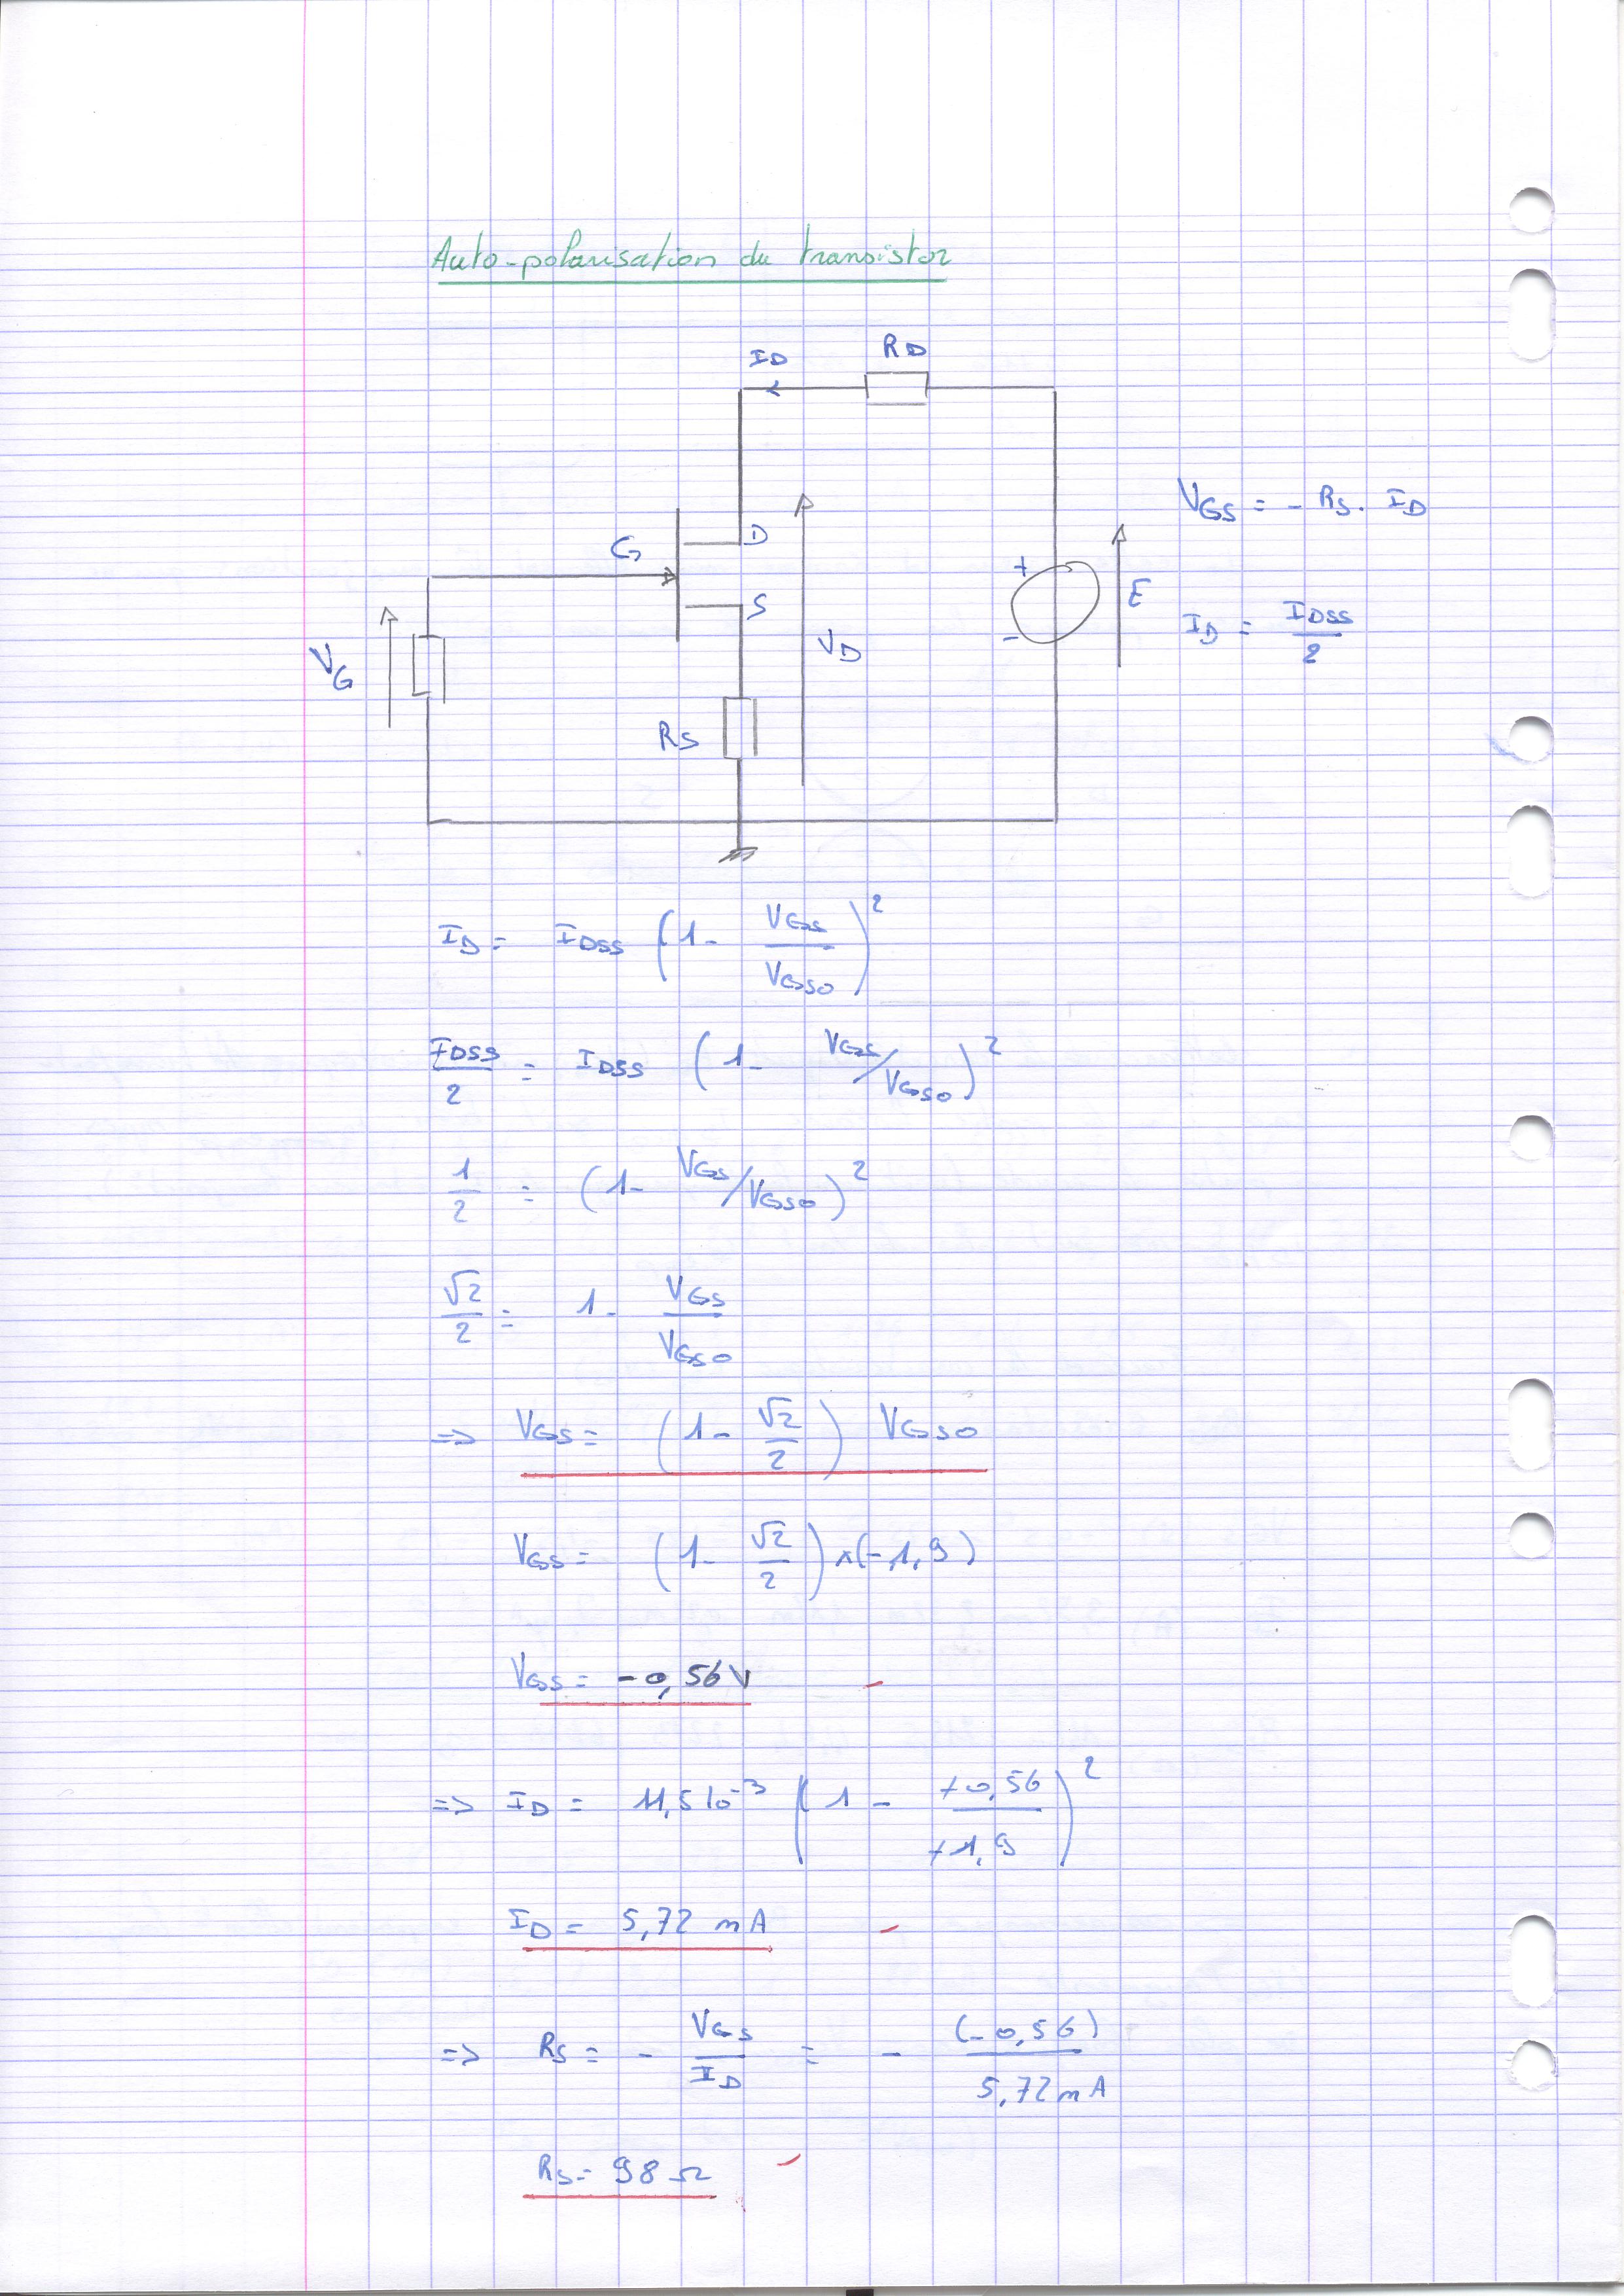 Auto-polarisation du transistor
ID
RD
VGS = - RS . ID
G
D
+
E
S
ID = IDSS / 2
-
VG
VD
RS
ID = IDSS (1 - VGS / VGS0)²
IDSS / 2 = IDSS (1 - VGS / VGS0)²
1 / 2 = (1 - VGS / VGS0)²
√2 / 2 = 1 - VGS / VGS0
=> VGS = (1 - √2 / 2) VGS0
VGS = (1 - √2 / 2) x (-1,9)
VGS = -0,56 V
=> ID = 11,5 10⁻³ (1 - +0,56 / +1,9)²
ID = 5,72 mA
=> RS = - VGS / ID = - (-0,56) / 5,72 mA
RS = 98 Ω